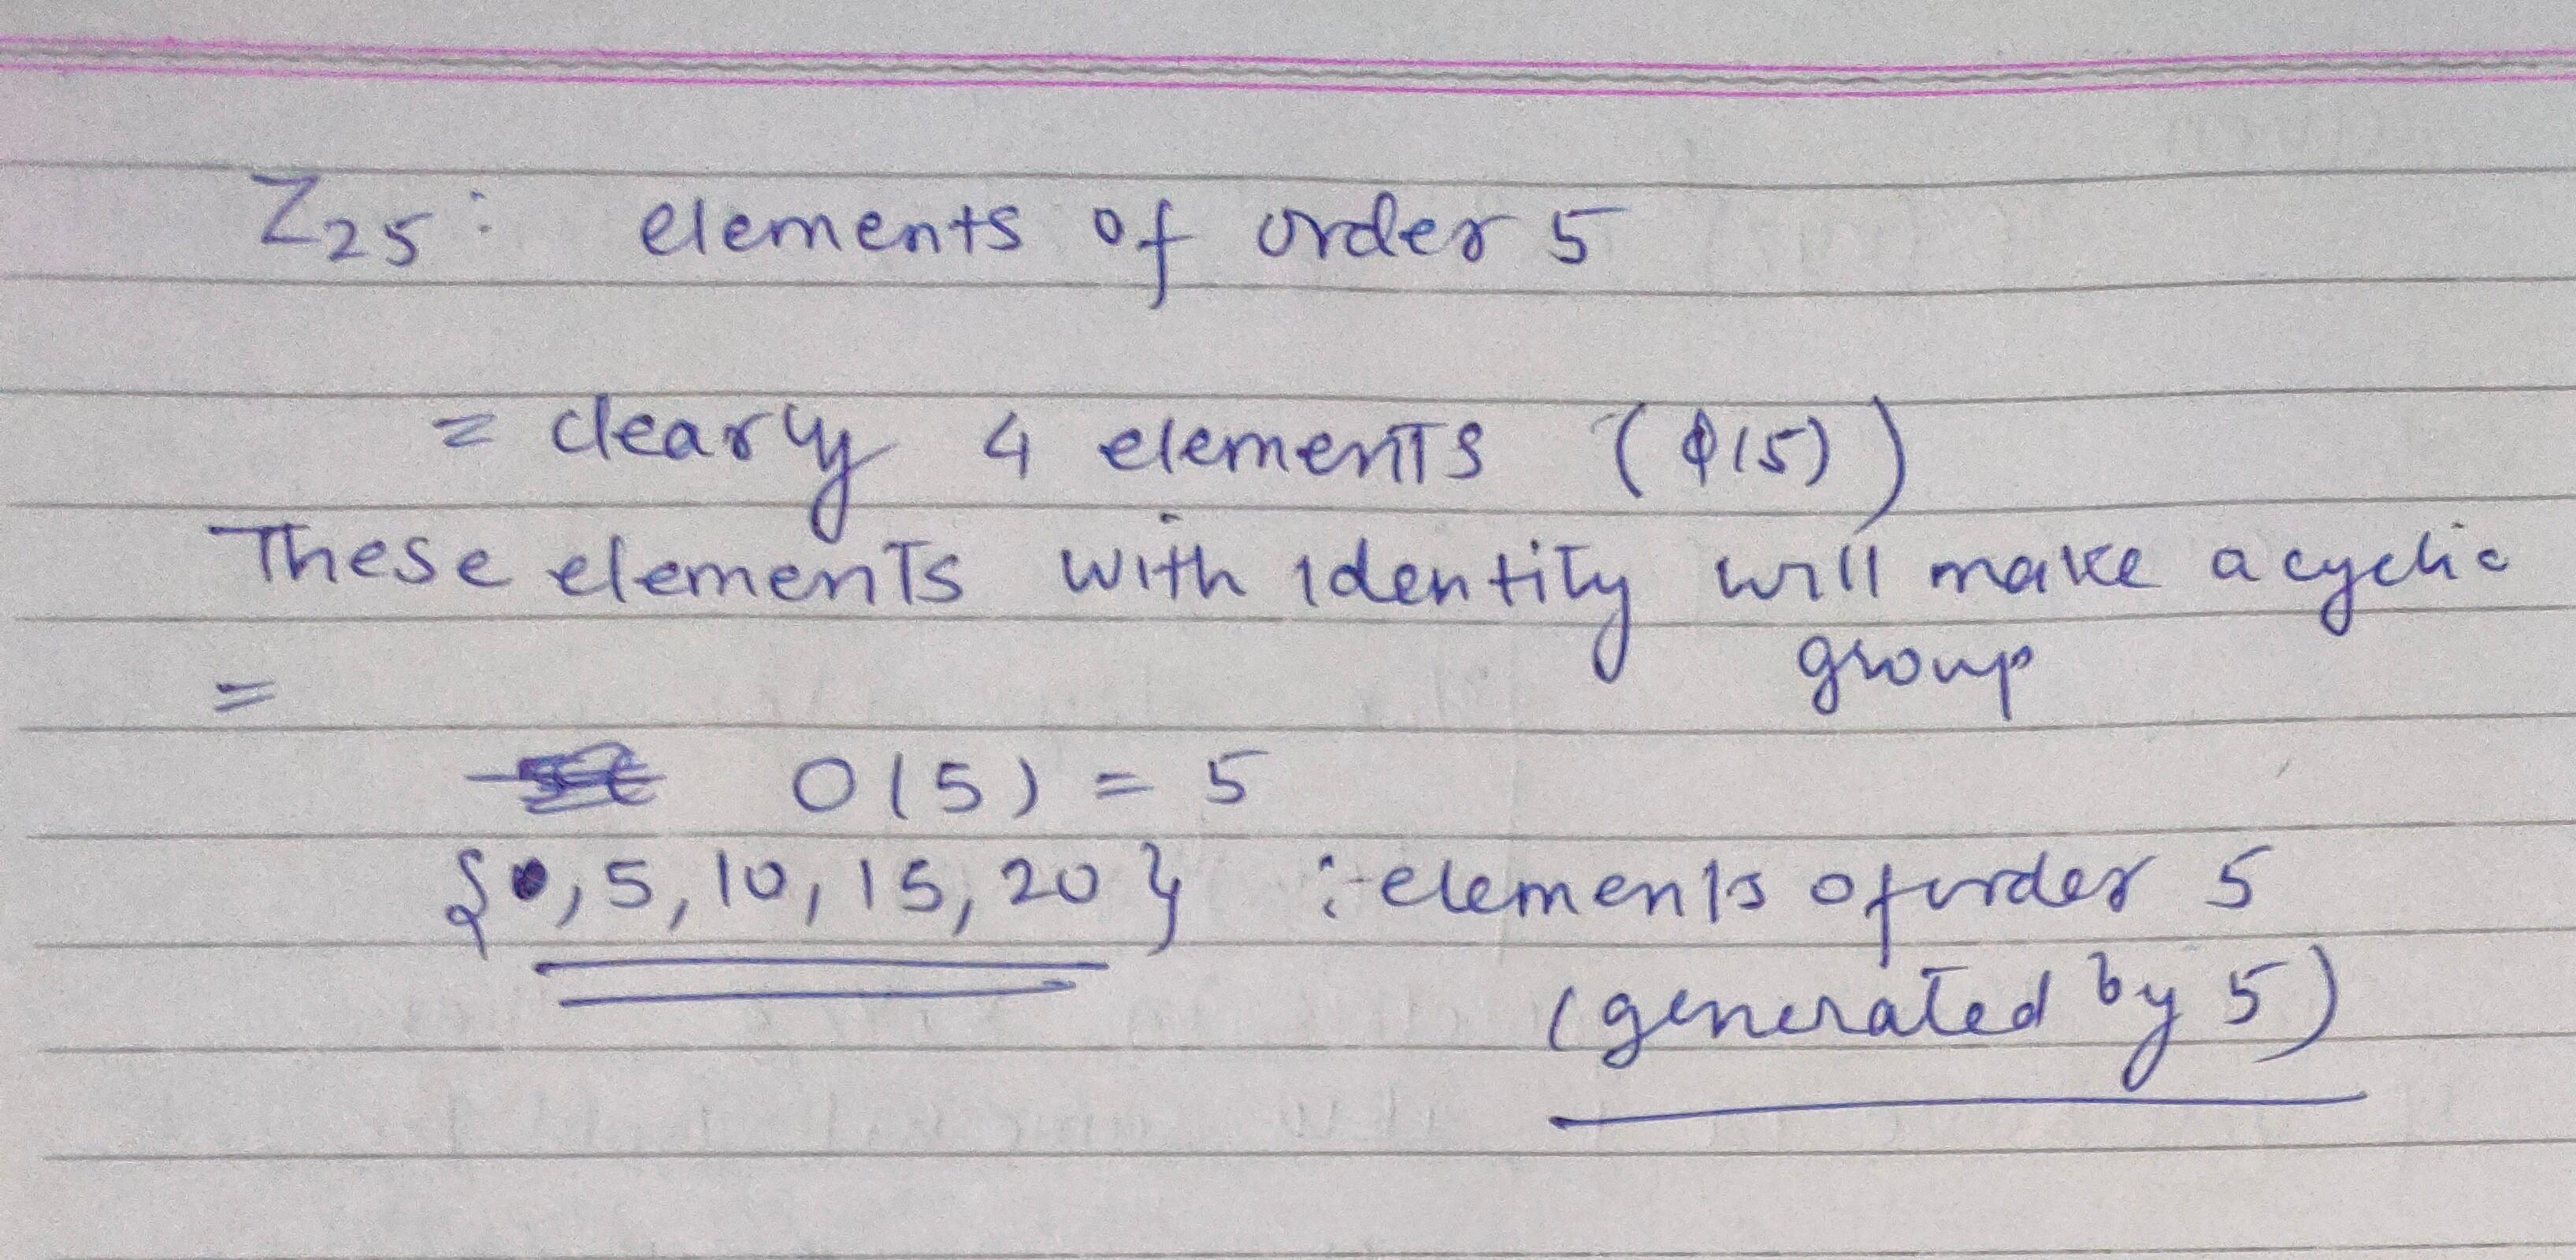 Z25: elements of order 5
= clearly 4 elements (ϕ(5))
These elements with identity will make a cyclic
group
=
O(5) = 5
{0, 5, 10, 15, 20} : elements of order 5
(generated by 5)